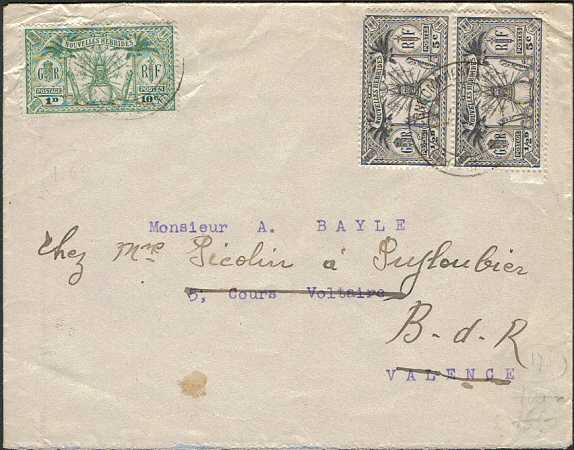 NOUVELLES HEBRIDES
G R R F
POSTAGE POSTES
1D 10c
NOUVELLES HEBRIDES
R F 5c
POSTES
G R ½D
POSTAGE
NOUVELLES HEBRIDES
R F 5c
POSTES
G R ½D
POSTAGE
Monsieur A. BAYLE
Chez Mme Picolin à Puyloubier
5, Cours Voltaire
B-d-R
VALENCE